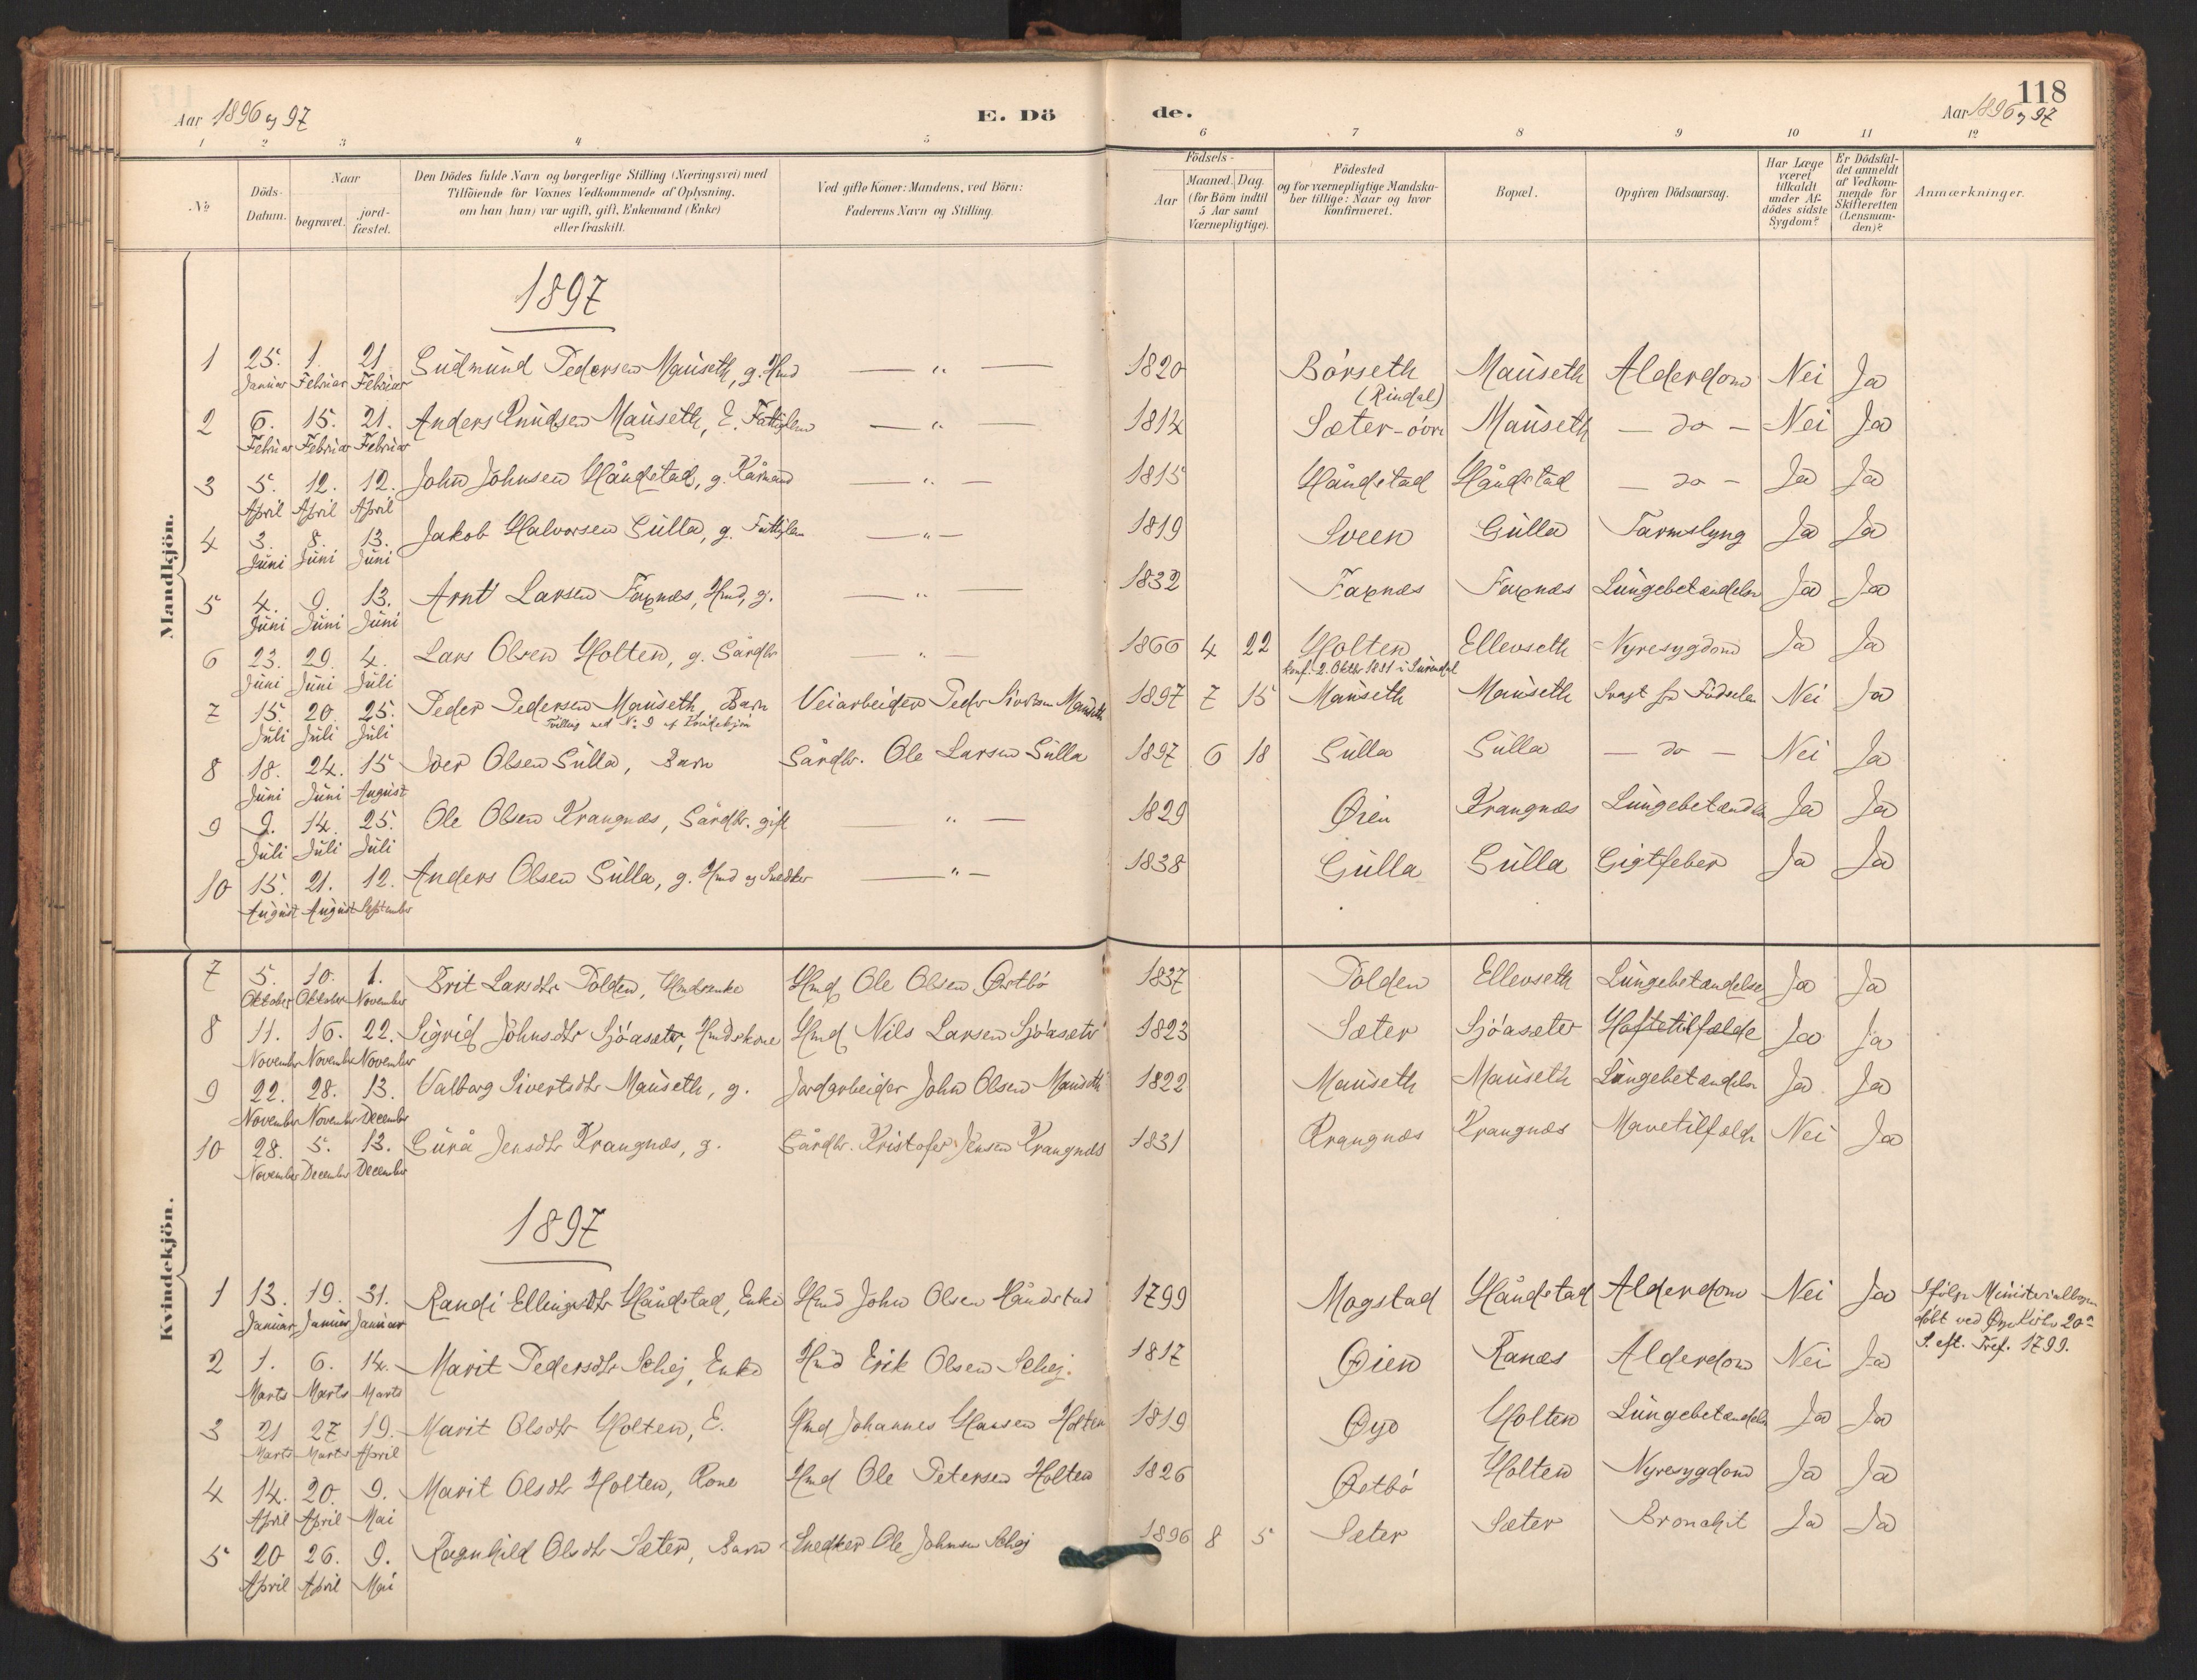 Aar 1896 og 97
E. Döde.
118
Aar 1896 og 97
1 2 3 4 5 6 7 8 9 10 11 12
No
Döds-Datum.
Naar
begravet.
jord-fæstet.
Den Dödes fulde Navn og borgerlige Stilling (Næringsvei) med
Tilföiende for Voxnes Vedkommende af Oplysning,
om han (hun) var ugift, gift, Enkemand (Enke)
eller fraskilt.
Ved gifte Koner: Mandens, ved Börn:
Faderens Navn og Stilling.
Födsels-
Aar
Maaned. Dag.
(for Börn indtil 5 Aar samt Værnepligtige).
Födested
og for værnepligtige Mandska-
ber tillige: Naar og hvor
konfirmeret.
Bopæl.
Opgiven Dödsaarsag.
Har Læge været tilkaldt under Af-dödes sidste Sygdom?
Er Dödsfal-det anmeldt af Vedkom-mende for Skifteretten (Lensman-den)?
Anmærkninger.
Mandkjön.
1897
1 25. Januar 1. Februar 21. Februar Gudmund Pedersen Mauseth, g. Hmd — " — 1820 Börseth (Rindal) Mauseth Alderdom Nei Ja
2 6. Februar 15. Februar 21. Februar Anders Knudsen Mauseth, E. Fattiglem — " — 1814 Sæter-övre Mauseth — do — Nei Ja
3 5. April 12. April 12. April John Johnsen Håndstad, g. Kårmand — " — 1815 Håndstad Håndstad — do — Ja Ja
4 3. Juni 8. Juni 13. Juni Jakob Halvorsen Gulla, g. Fattiglem — " — 1819 Sveen Gulla Tarmslyng Ja Ja
5 4. Juni 9. Juni 13. Juni Arnt Larsen Faxnæs, Hmd, g. — " — 1832 Faxnæs Faxnæs Lungebetændelse Ja Ja
6 23. Juni 29. Juni 4. Juli Lars Olsen Holten, g. Gårdbr — " — 1866 4 22 Holten Ellevseth Nyresygdom Ja Ja
konf. 2. Oktbr 1881 i Surendal
7 15. Juli 20. Juli 25. Juli Peder Pedersen Mauseth, Barn Veiarbeider Peder Sivertsen Mauseth 1897 7 15 Mauseth Mauseth Svagt fra Födselen Nei Ja
Tvilling med No 9 af Kvindekjön
8 18. Juni 24. Juni 15 August Iver Olsen Gulla, Barn Gårdbr. Ole Larsen Gulla 1897 6 18 Gulla Gulla — do — Nei Ja
9 9. Juli 14. Juli 25. Juli Ole Olsen Krangnæs, Gårdbr. gift — " — 1829 Øien Krangnæs Lungebetændelse Ja Ja
10 15. August 21. August 12. September Anders Olsen Gulla, g. Hmd og Snedker — " — 1838 Gulla Gulla Gigtfeber Ja Ja
Kvindekjön.
7 5. Oktober 10. Oktober 1. November Brit Larsdtr Polden, Hmdsenke Hmd Ole Olsen Østbö 1837 Polden Ellevseth Lungebetændelse Ja Ja
8 11. November 16. November 22. November Sigrid Johnsdtr Sjöasæter, Hmdskone Hmd Nils Larsen Sjöasæter 1823 Sæter Sjöasæter Hoftetilfælde Ja Ja
9 22. November 28. November 13. December Valborg Sivertsdtr Mauseth, g. Jordarbeider John Olsen Mauseth 1822 Mauseth Mauseth Lungebetændelse Ja Ja
10 28. November 5. December 13. December Gurå Jensdtr Krangnæs, g. Gårdbr. Kristofer Jensen Krangnæs 1831 Krangnæs Krangnæs Mavetilfælde Nei Ja
1897
1 13. Januar 19. Januar 31. Januar Randi Ellingsdtr Håndstad, Enke Hmd John Olsen Håndstad 1799 Mogstad Håndstad Alderdom Nei Ja
Ifölge Ministerialbogen
döbt ved Øye Kirke 20de
S. eft. Tref. 1799.
2 1. Marts 6. Marts 14. Marts Marit Pedersdtr Schej, Enke Hmd Erik Olsen Schej. 1817 Øien Ranæs Alderdom Nei Ja
3 21 Marts 27 Marts 19. April Marit Olsdtr Holten, E. Hmd Johannes Hansen Holten 1819 Øye Holten Lungebetændelse Ja Ja
4 14. April 20. April 9. Mai Marit Olsdtr Holten, Kone Hmd Ole Petersen Holten 1826 Østbö Holten Nyresygdom Ja Ja
5 20 April 26. April 9. Mai Ragnhild Olsdtr Sæter, Barn Snedker Ole Johnsen Schej 1896 8 5 Sæter Sæter Bronchit Ja Ja